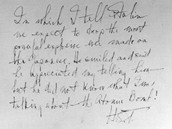 In which I tell Stalin
we expect to drop the most
powerful explosive ever made on
the Japanese. He smiled and said
he appreciated my telling him—
but he did not know what I was
talking about—the Atomic Bomb!
HST